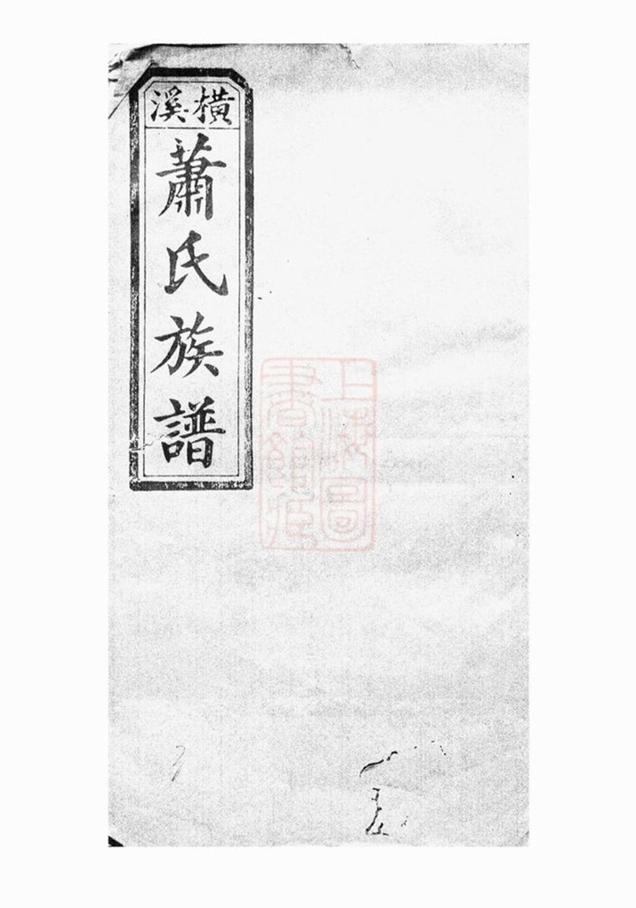 橫溪
蕭氏族譜
上海圖
書館藏